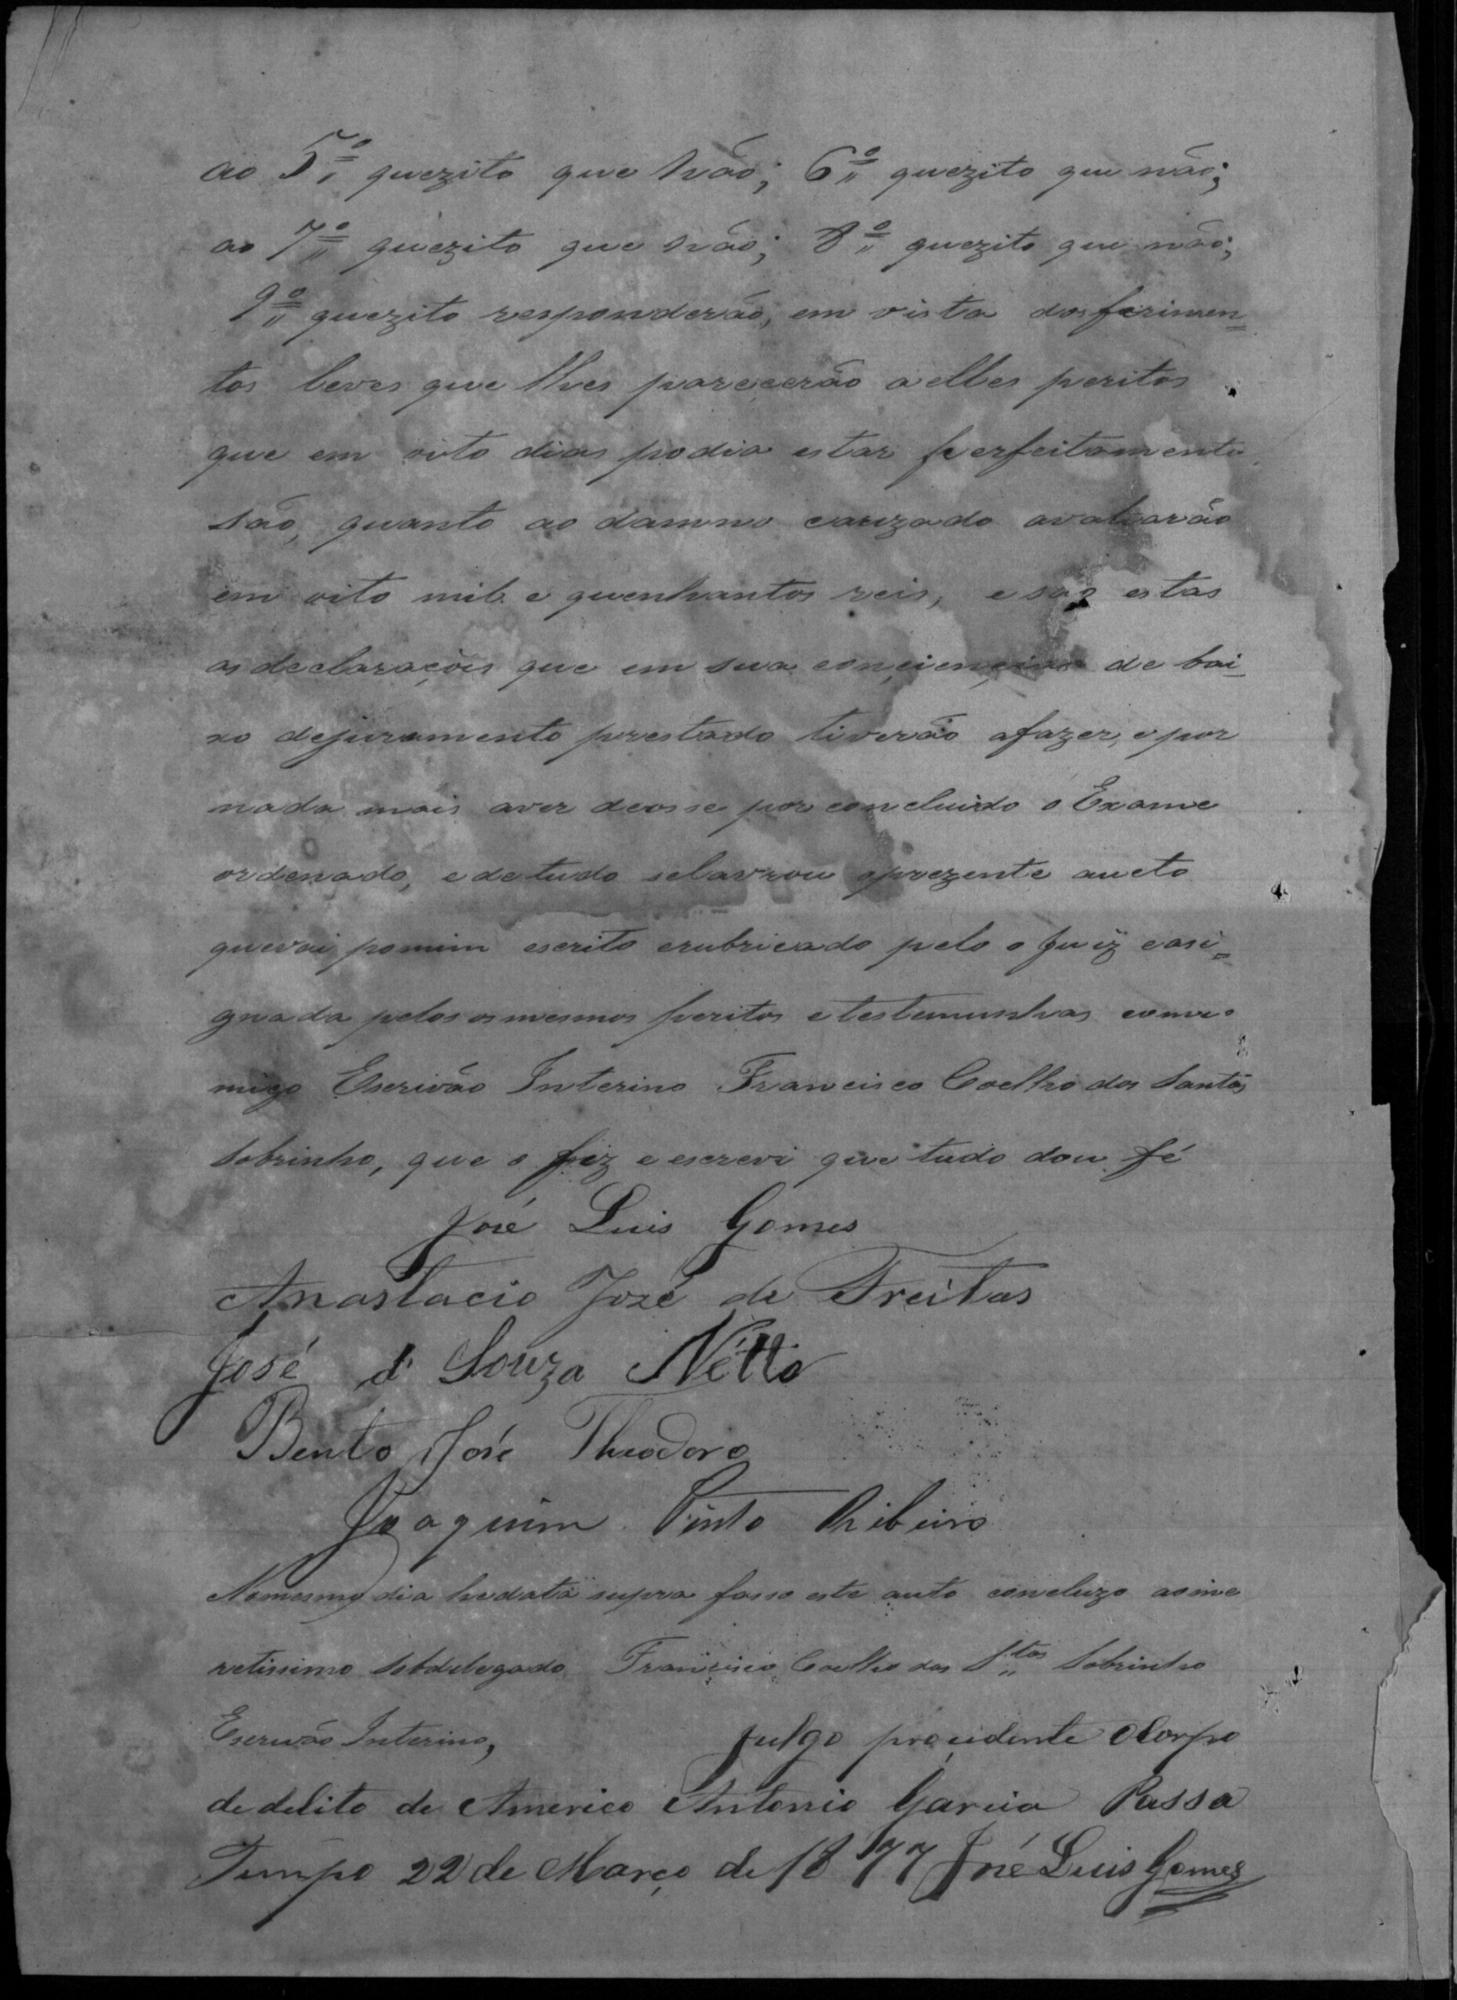 ao 5º quezito que não; 6º quezito que não;
ao 7º quezito que não; 8º quezito que não;
9º quezito responderão, em vista dos ferimen=
tos leves que lhes parecerão a elles peritos
que em oito dias podia estar perfeitamente
são, quanto ao damno cauzado avaluarão
em oito mil e quenhantos reis, e são estas
as declarações que em sua conciencia de bai=
xo dejuramento prestado tiverão afazer, e por
nada mais aver deosse por concluido o Exame
ordenado, e de tudo selavrou oprezente aucto
quevai pomim escrito erubricado pelo o Juiz easi=
gnada pelos os mesmos peritos e testumunhas comi
migo Escrivão Interino Francisco Coelho dos Santos
Sobrinho, que o fiz e escrevi que tudo dou fé
José Luis Gomes
Anastacio Jozé de Freitas
José d' Souza Netto
Bento José Theodoro
Joaquim Pinto Ribeiro
Nomesmo dia hedata supra fasso este auto concluzo aome
retissimo Sobdelegado Francisco Coelho dos Stos Sobrinho
Escrivão Interino,
Julgo procidente oCorpo
de delito de Americo Antonio Garcia Passa
Tempo 22 de Março de 1877 José Luis Gomes